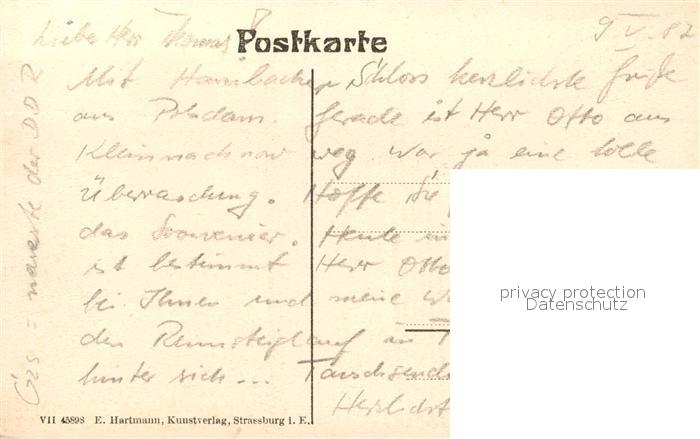 Postkarte
9 V. 87
Liebe Herr Thomas!
Mit Hambacher Schloss herzlichste Grüße
aus Potsdam. Gerade ist Herr Otto aus
Kleinmachnow weg. War ja eine tolle
Überraschung. Hoffe Sie
das Souvenier. Heute in
ist bestimmt Herr Otto
bei Ihnen und meine
den Rennsteiglauf an
hinter sich... Tauschsend
Herzlichst
= neueste der DDR
privacy protection
Datenschutz
VII 45898 E. Hartmann, Kunstverlag, Strassburg i. E.